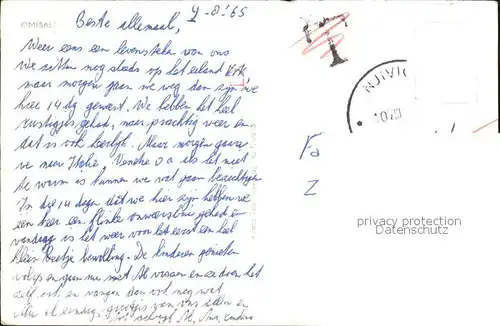 OMISALJ
9-8-'65
Beste allemaal,
Weer eens een levensteken van ons
We zitten nog steeds op het eiland Krk,
maar morgen gaan we weg dan zijn we
hier 14 dg geweest. We hebben het heel
rustig gehad, maar prachtig weer en
dat is ook heerlijk. Maar morgen gaan
we naar Italië, Venetië o.a. als het niet
te warm is kunnen we wat gaan bezichtigen
In die 14 dagen dat we hier zijn hebben we
één keer een flinke onweersbui gehad en
vandaag is het weer voor het eerst een heel
klein beetje bewolking. De kinderen genieten
volop en gaan nu met Ab vissen en eten het
zelf, en vangen dan ook nog wat
groetjes van ons allen en
T
NJIVIC
Fa
Z
privacy protection
Datenschutz